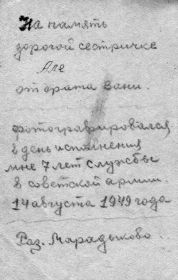 На память
дорогой сестричке
Але
от брата Вани.
фотографировался
в день исполнения
мне 7 лет службы
в советской армии.
14 августа 1949 года
Раз. Марадыково